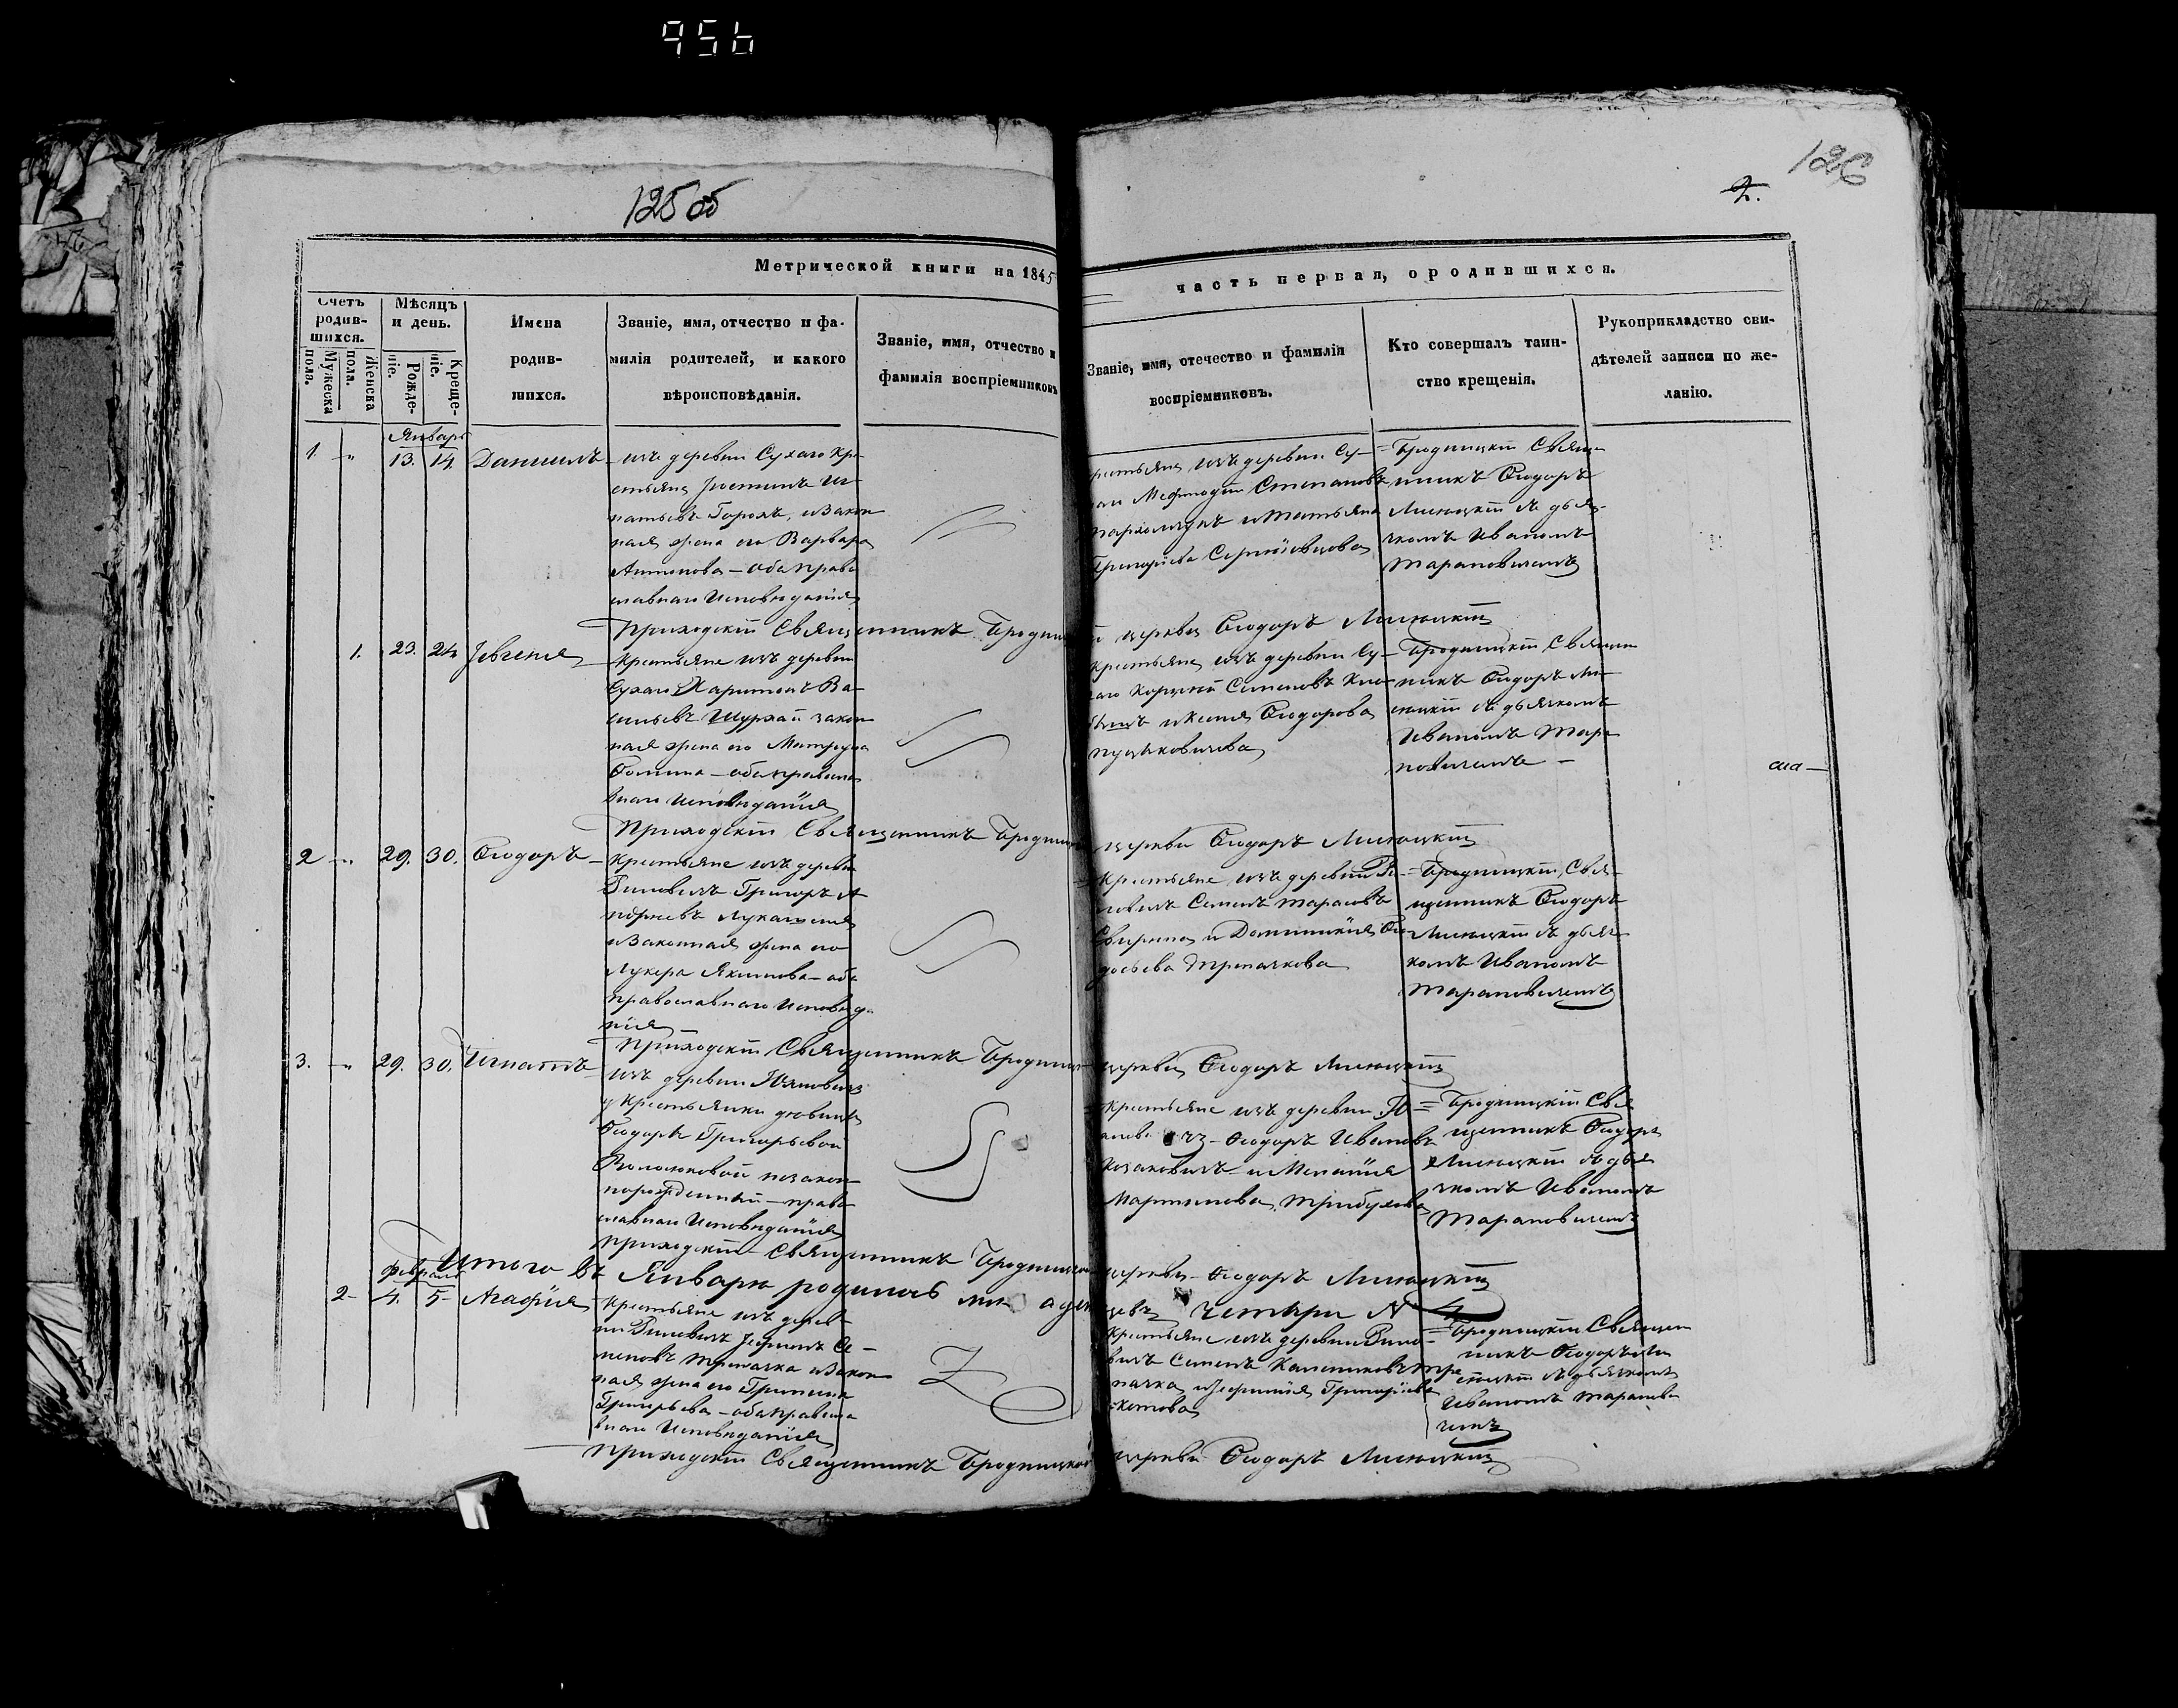 956
125 об
126
2.
Метрической книги на 1845
часть первая, о родившихся.
Счетъ родив-шихся.
Мужеска пола.
Женска пола.
Мѣсяцъ и день.
Рожде-ніе.
Креще-ніе.
Имена
родив-
шихся.
Званіе, имя, отчество и фа-
милія родителей, и какого
вѣроисповѣданія.
Званіе, имя, отчество и
фамилія воспріемниковъ
Званіе, имя, отечество и фамилія
воспріемниковъ.
Кто совершалъ таин-
ство крещенія.
Рукоприкладство сви-
дѣтелей записи по же-
ланію.
Январь
1. 13. 14. Даниилъ
изъ деревни Сухаго Кре-
стьянъ Іустинъ Иг-
натьевъ Горохъ, и закон
ная жена его Варвара
Антонова – оба право
славнаго Исповѣданія
крестьяне изъ деревни Су-
Мефподій Степановъ
и Татьяна
Григорїева
Бродницкій Свяще
нникъ Ѳеодоръ
Лисецкій съ дья-
чкомъ Иваномъ
Тарановичемъ
Приходскій Священникъ Бродниц
церкви Ѳеодоръ Лисецкій
1. 23. 24. Іевгенія
Крестьяне изъ деревни
Сухаго Харитонъ Ва-
сильевъ Шурхай закон
ная жена его Матрона
Фомина – оба правосла
внаго Исповѣданія
Крестьяне изъ деревни Су-
хаго Корнилій Семеновъ
и Ксенія Ѳеодорова
Бродницкій Священ
никъ Ѳеодоръ Ли-
сецкій съ дьячкомъ
Иваномъ Тара
новичемъ –
Приходскій Священникъ Бродниц
церкви Ѳеодоръ Лисецкій
2 29. 30. Ѳеодоръ
Крестьяне изъ деревни
Григоръ А
ндреевъ Лукашеня
и законная жена его
Лукера Якимова – оба
православнаго Исповѣда
нія
Крестьяне изъ деревни
Семенъ Тарасовъ
Свирина и Домникія Ѳе
досѣева Трепачкова
Бродницкій Свя-
щенникъ Ѳеодоръ
Лисецкій съ дьяч
комъ Иваномъ
Тарановичемъ
Приходскій Священникъ Бродниц
церкви Ѳеодоръ Лисецкій
3. 29. 30. Игнатъ
изъ деревни
у крестьянки дѣвицы
Ѳеодоры Григорьевой
незакон
норожденный – право
славнаго Исповѣданія
Крестьяне изъ деревни
Ѳеодоръ Ивановъ
Козаковичъ и Меланія
Мартинова
Бродницкій Свя
щенникъ Ѳеодоръ
Лисецкій съ дья
чкомъ Иваномъ
Тарановичемъ
Приходскій Священникъ Бродницкой
церкви Ѳеодоръ Лисецкій
Итого въ Январѣ родилось мла аден
цевъ четыри № 4
Февраль
2 4. 5 Агафія
Крестьяне изъ дерев-
ни Іефимъ Се-
меновъ Трепачка и закон
ная жена его
Григорьева – оба правосла
внаго Исповѣданія
Крестьяне изъ деревни
Семенъ Калениковъ Тре
пачка и Іефимія Григорїева
Бродницкій Священ
никъ Ѳеодоръ Ли
сецкій съ дьячкомъ
Иваномъ Таранови
чемъ
Приходскій Священникъ Бродницкой
церкви Ѳеодоръ Лисецкій